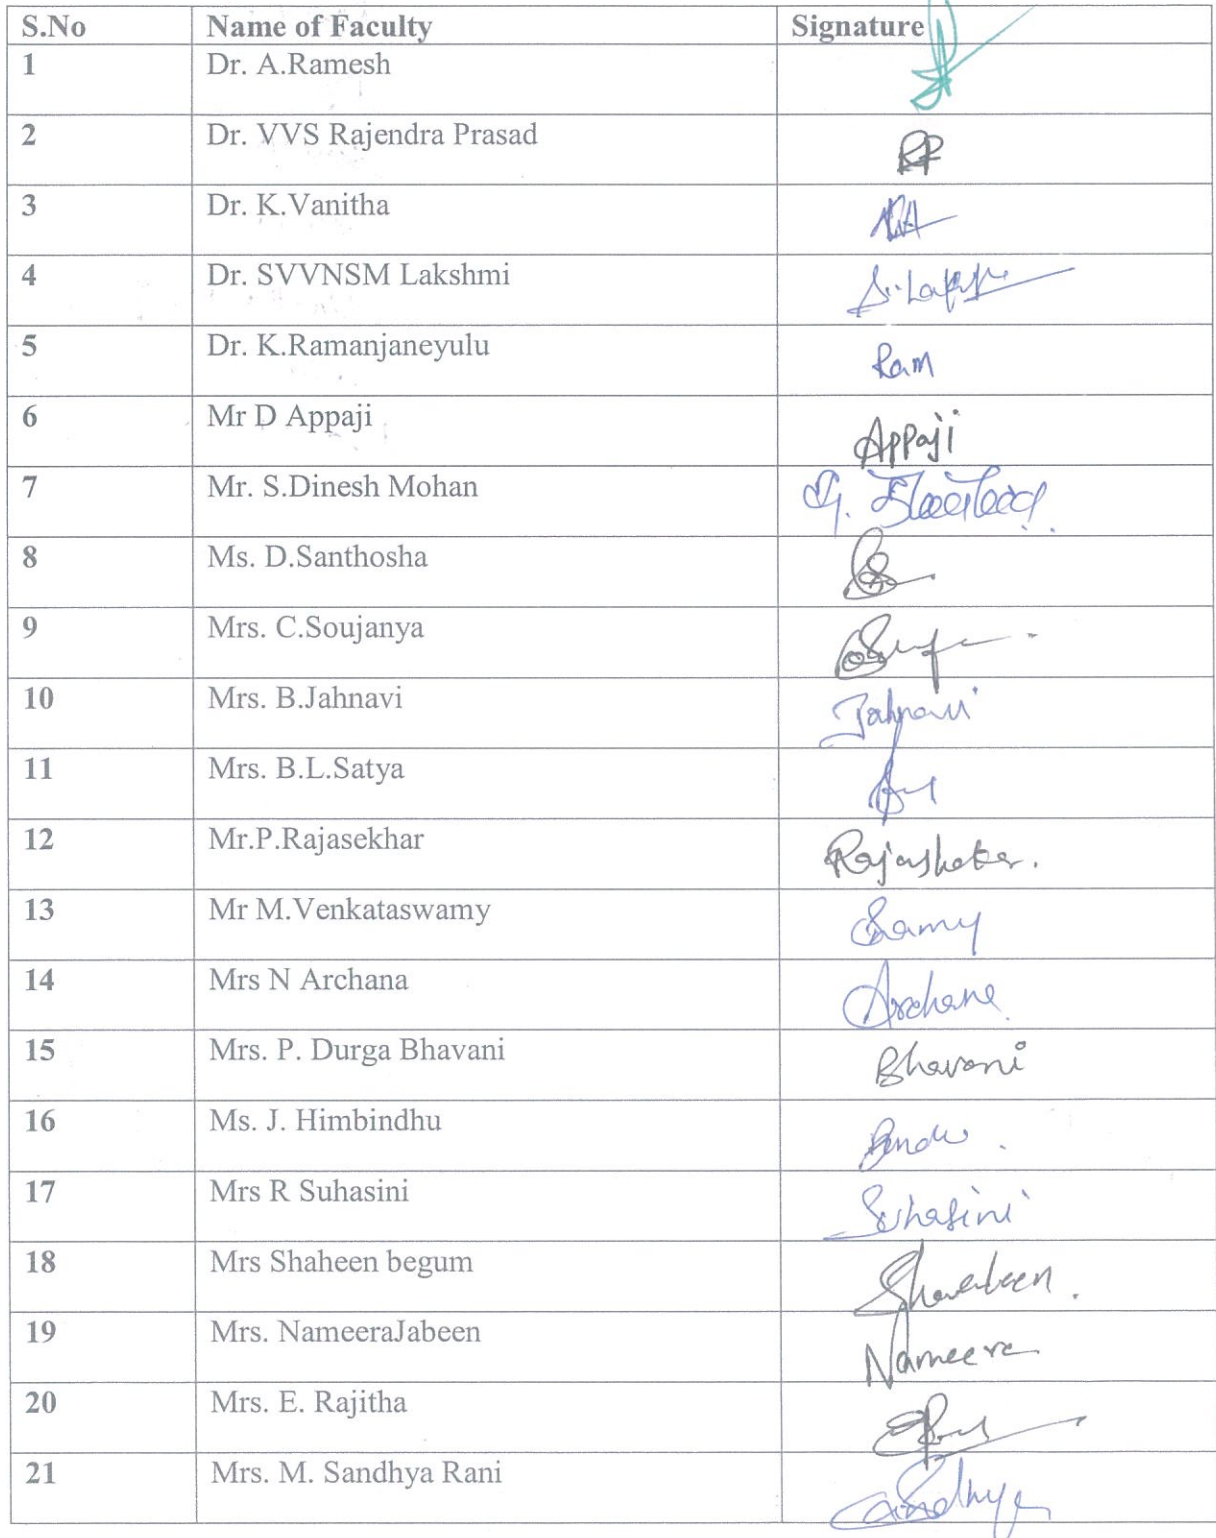 S.No Name of Faculty Signature
1 Dr. A.Ramesh
2 Dr. VVS Rajendra Prasad RP
3 Dr. K.Vanitha
4 Dr. SVVNSM Lakshmi
5 Dr. K.Ramanjaneyulu Ram
6 Mr D Appaji Appaji
7 Mr. S.Dinesh Mohan
8 Ms. D.Santhosha
9 Mrs. C.Soujanya
10 Mrs. B.Jahnavi Jahnavi
11 Mrs. B.L.Satya
12 Mr.P.Rajasekhar Rajashekar.
13 Mr M.Venkataswamy Swamy
14 Mrs N Archana Archana
15 Mrs. P. Durga Bhavani Bhavani
16 Ms. J. Himbindhu Bindu
17 Mrs R Suhasini Suhasini
18 Mrs Shaheen begum
19 Mrs. NameeraJabeen Nameera
20 Mrs. E. Rajitha
21 Mrs. M. Sandhya Rani Sandhya